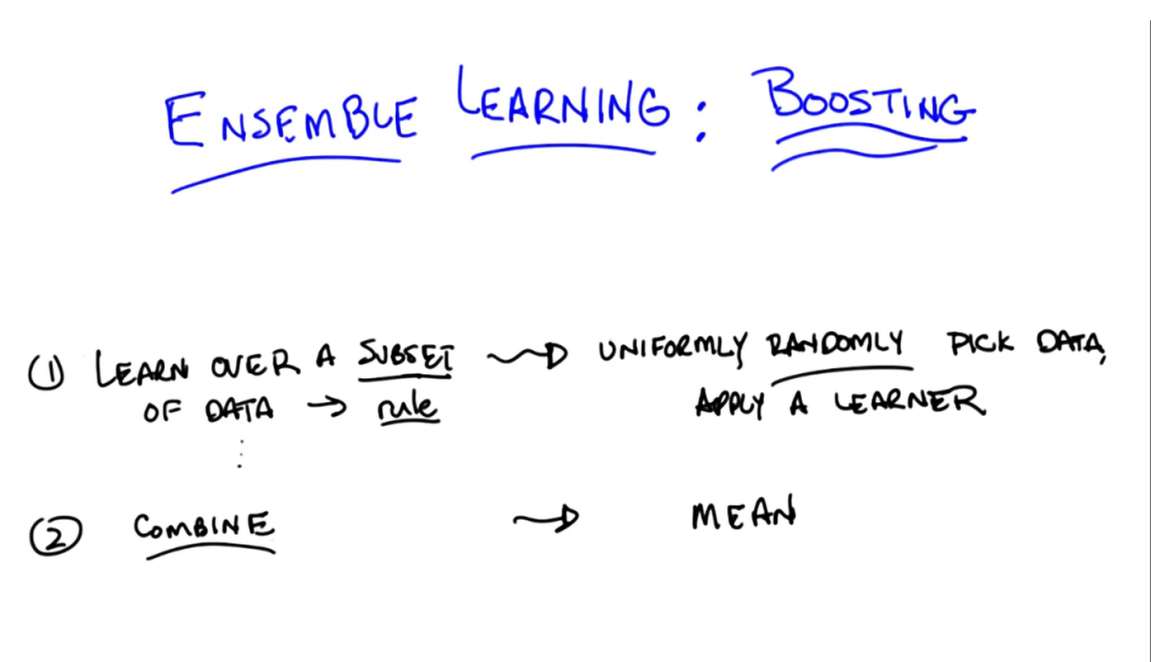 ENSEMBLE LEARNING: BOOSTING
① LEARN OVER A SUBSET → UNIFORMLY RANDOMLY PICK DATA,
OF DATA → rule APPLY A LEARNER
⋮
② COMBINE → MEAN